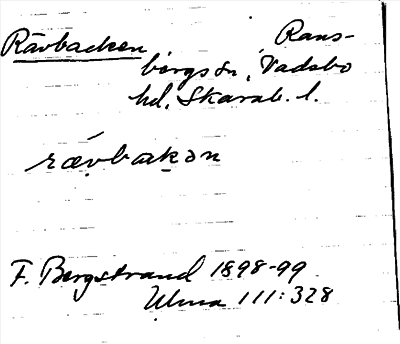 Rävbacken Rans-
bergs sn, Vadsbo
hd, Skarab. l.
rävbakən
F. Bergstrand 1898-99
Ulma 111:328